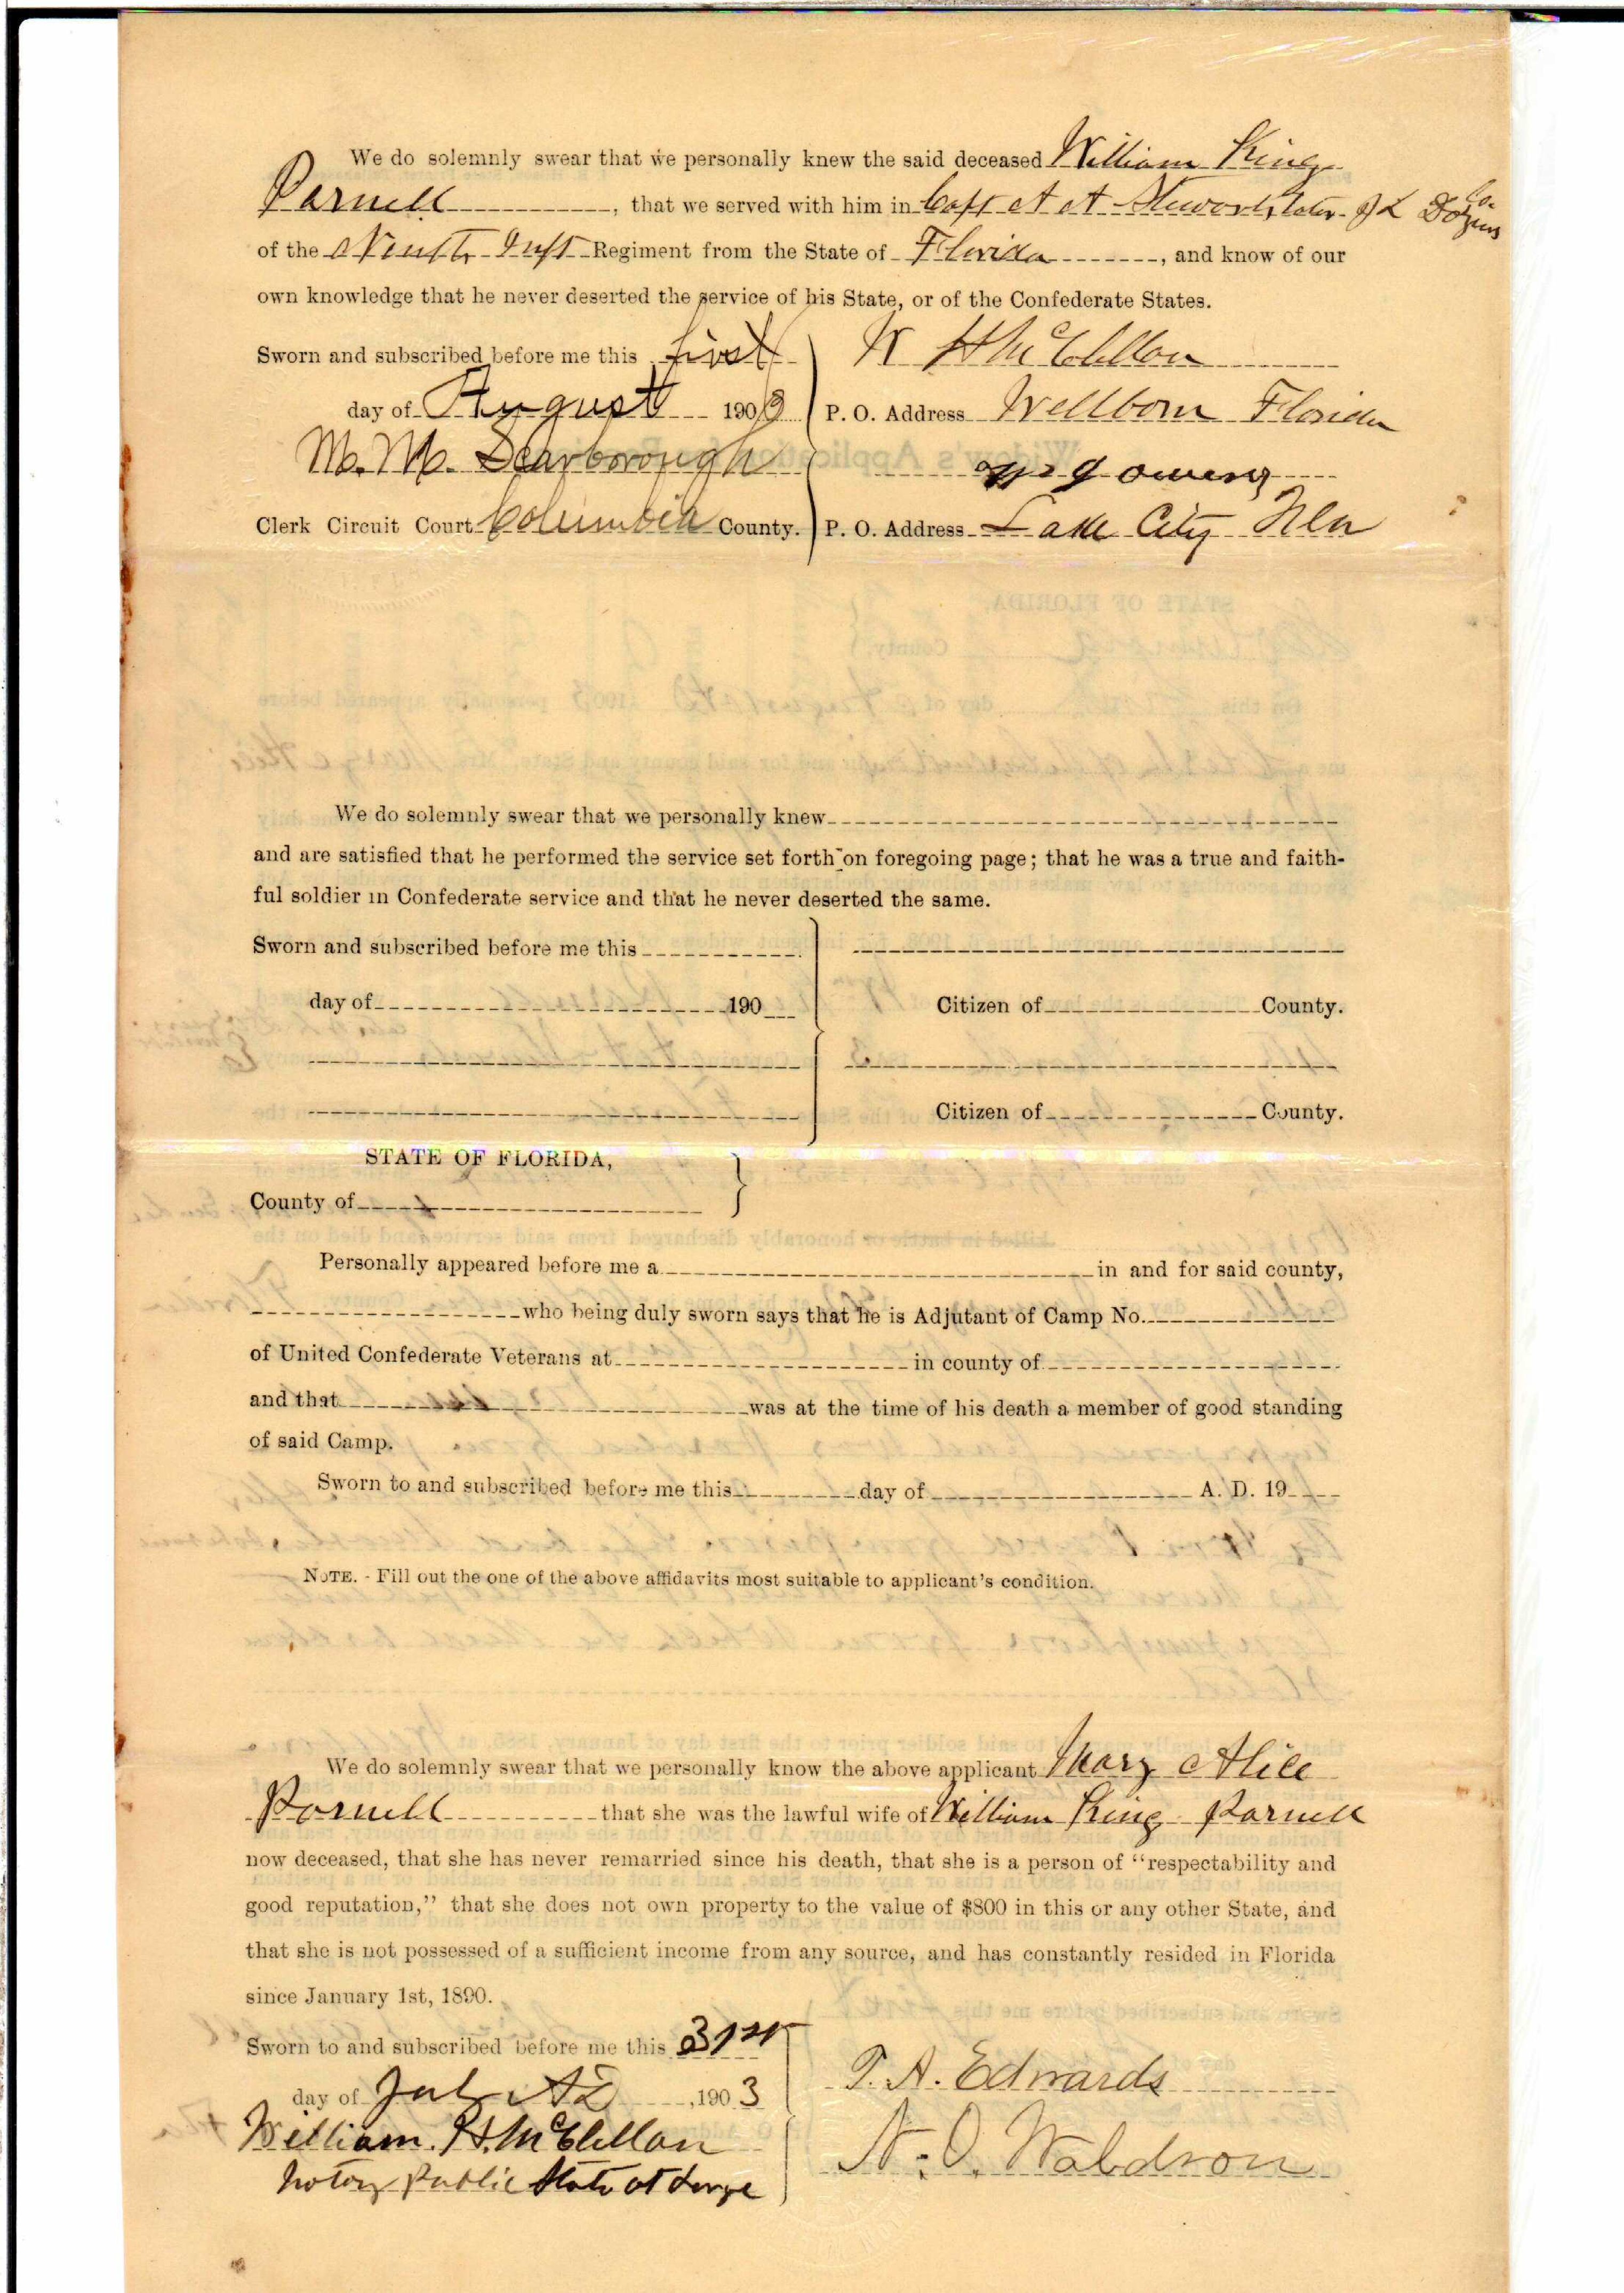 We do solemnly swear that we personally knew the said deceased William King
Parnell, that we served with him in Capt A A Stewart, later J L Doziers Co.
of the Ninth Inft Regiment from the State of Florida, and know of our
own knowledge that he never deserted the service of his State, or of the Confederate States.
Sworn and subscribed before me this first
day of August 1903
M. M. Scarborough
Clerk Circuit Court Columbia County.
W H McClellan
P. O. Address Wellborn Florida
owens
P. O. Address Lake City Fla
We do solemnly swear that we personally knew
and are satisfied that he performed the service set forth on foregoing page; that he was a true and faith-
ful soldier in Confederate service and that he never deserted the same.
Sworn and subscribed before me this
day of 190
Citizen of County.
Citizen of County.
STATE OF FLORIDA,
County of
Personally appeared before me a in and for said county,
who being duly sworn says that he is Adjutant of Camp No.
of United Confederate Veterans at in county of
and that was at the time of his death a member of good standing
of said Camp.
Sworn to and subscribed before me this day of A. D. 19
NOTE. - Fill out the one of the above affidavits most suitable to applicant's condition.
We do solemnly swear that we personally know the above applicant Mary Alice
Parnell that she was the lawful wife of William King Parnell
now deceased, that she has never remarried since his death, that she is a person of "respectability and
good reputation," that she does not own property to the value of $800 in this or any other State, and
that she is not possessed of a sufficient income from any source, and has constantly resided in Florida
since January 1st, 1890.
Sworn to and subscribed before me this 31st
day of July AD, 1903
William H. McClellan
Notary Public State at Large
T. A. Edwards
N. O. Waldron